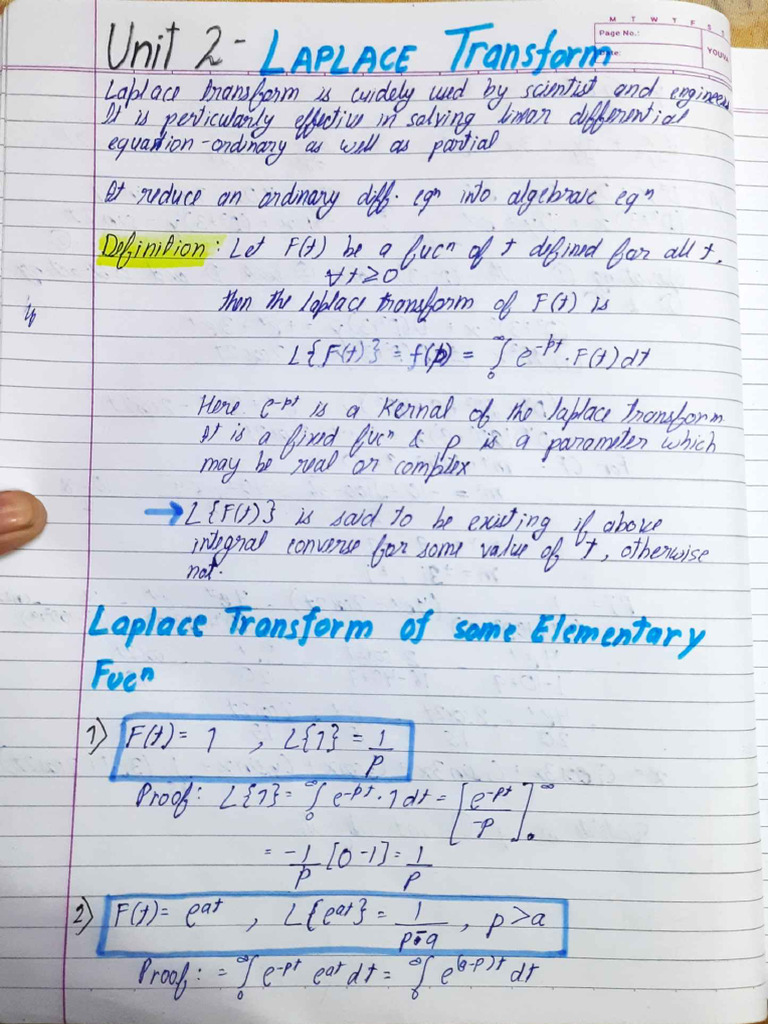 M T W T F S S
Page No.:
Date:
YOUVA
Unit 2 - LAPLACE Transform
Laplace transform is widely used by scientist and engineers
It is perticularly effective in solving linar differential
equation - ordinary as well as partial
It reduce an ordinary diff. eqⁿ into algebraic eqⁿ
Definition : Let F(t) be a fucⁿ of t defined for all t,
∀ t ≥ 0
then the laplace transform of F(t) is
L{F(t)} = f(p) = ∫₀^∞ e^(-pt) . F(t) dt
Here e^(-pt) is a Kernal of the laplace transform
It is a fixed fucⁿ & p is a parameter which
may be real or complex
→ L{F(t)} is said to be existing if above
integral converse for some value of t, otherwise
not.
Laplace Transform of some Elementary
Fucⁿ
1) F(t) = 1 , L{1} = 1/p
Proof: L{1} = ∫₀^∞ e^(-pt) . 1 dt = [e^(-pt)/-p]₀^∞
= -1/p [0-1] = 1/p
2) F(t) = e^(at) , L{e^(at)} = 1/(p-a) , p > a
Proof: = ∫₀^∞ e^(-pt) e^(at) dt = ∫₀^∞ e^((a-p)t) dt